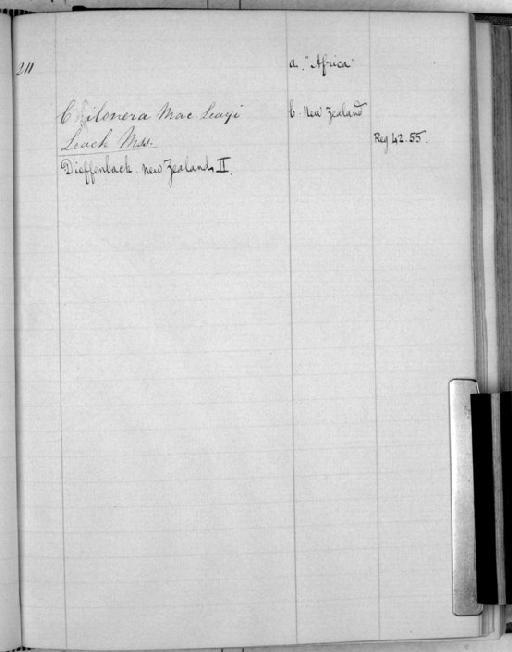 211
a. "Africa"
Chilonera Mac Leayi
b. New Zealand
Leach Mss.
Reg 42.55.
Dieffenbach. New Zealand, II.